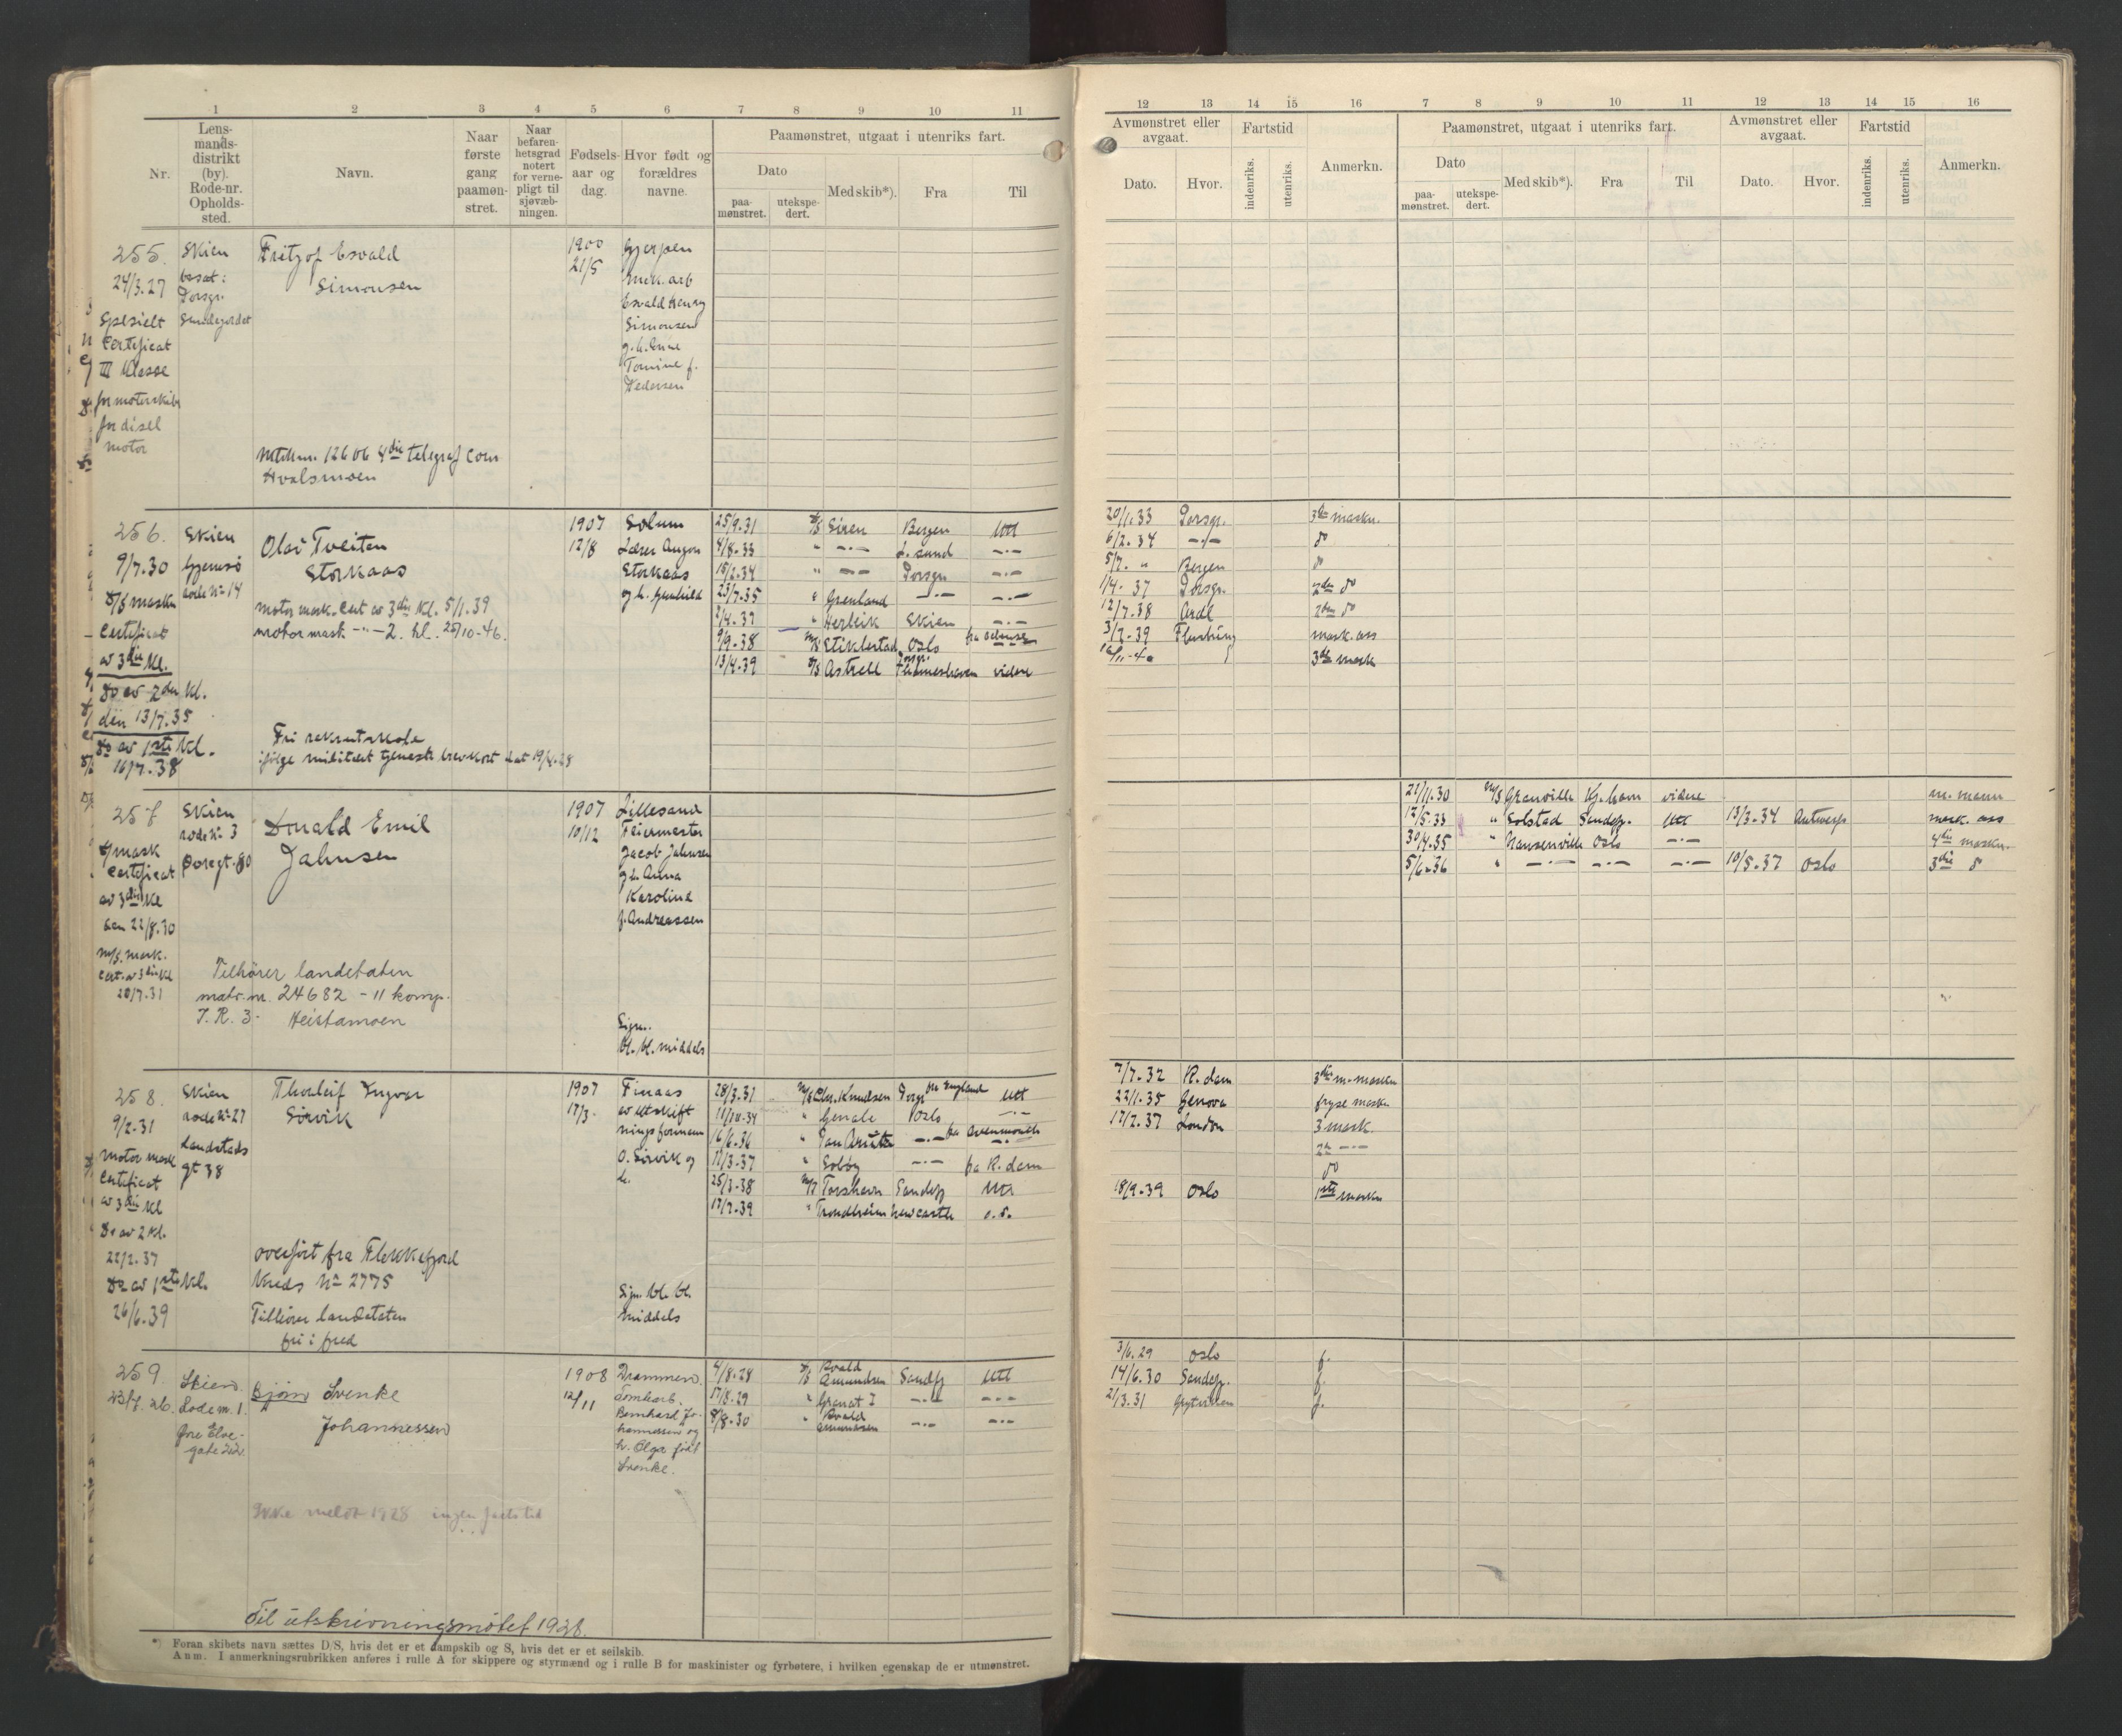 1 2 3 4 5 6 7 8 9 10 11
Nr.
Lens-
mands-
distrikt
(by).
Rode-nr.
Opholds-
sted.
Navn.
Naar
første
gang
paamøn-
stret.
Naar
befaren-
hetsgrad
notert
for verne-
pligt til
sjøvæb-
ningen.
Fødsels-
aar og
dag.
Hvor født og
forældres
navne.
Paamønstret, utgaat i utenriks fart.
Dato
paa-
mønstret.
utekspe-
dert.
Med skib*).
Fra
Til
255.
24/3.27
Spesielt
Certificat
III Klasse
for motorskibe
for disel
motor
Skien
Porsgr.
Fritzof Esvald
Simonsen
1900
21/5
Gjerpen
Esvald Henry
Simonsen
Tomine f.
Pedersen
12606 4die telegraf com
Hvalsmoen
256.
9/7.30
D/S maskn
Certificat
av 3die Kl.
Do av 2den Kl.
den 13/7.35
Do av 1ste Kl.
16/7.38
Skien
Gjemsø
rode No 14
Olav Tveiten
Storkaas
motor mask. Cert av 3die Kl. 5/1.39
motor mask — " — 2. kl. 25/10-46.
Fri rekrutskole
ifølge militært tjeneste brevkort dat 19/4.28
1907
12/8
Solum
Storkaas
og h. Gunhild
25/9.31 D/S Siren Bergen Utl
4/8.33 " —"— L.sund —"—
15/2.34 " —"— Porsgr. —"—
23/7.35 " Grenland —"— —"—
2/4.37 " Herleik Skien —"—
9/9.38 M/S Stiklestad Oslo
13/4.39 D/S Astrell Thameshaven videre
257
D/S mask
Certificat
av 3die Kl
den 22/8.30
m/s. mask.
Cert. av 3die Kl
20/7.31
Skien
rode No 3
Donald Emil
Jahnsen
Tilhører landetaten
matr. nr. 24682 - 11 komp.
I. R. 3- Heistamoen
1907
10/12
Lillesand
Feiermester
Jacob Jahnsen
og h. Anna
Karoline
f. Andreassen
Sign.:
bl. bl. middels
258.
9/2-31
motor mask
Certificat
av 3die Kl
Do av 2 Kl.
22/2.37
Do av 1ste Kl.
26/6.39
Skien
rode No 27
Landstads
gt 38
Thorleif Ingvar
Sirvik
overført fra Flekkefjord
Kreds No 2775
Tilhører landetaten
fri i fred
1907
17/3.
Finaas
av Utskift
ningsformann
O. Sirvik og
h.
Sign. bl. bl.
middels
28/3.31 M/S Chr. Knudsen Porsgr fra England Utl
11/10.34 " Genale Oslo —"—
16/6.36 " —"— fra Avenmouth
11/3-37 " Solöy —"— fra R.dam
25/3-38 M/T Torshavn Sandefj Utl
17/7.39 " Trondheim Newcastle
259.
23/7.26.
Skien.
Rode nr. 1.
Øvre Elve-
gate
Bjørn Svenke
Johannessen
Ikke meldt 1928 ingen fartstid
Til utskrivningsmøtet 1928.
1908
12/11
Drammen.
Tomtearb.
Bernhard Jo-
hannessen og
h. Olga født
Svenke.
4/8.28 D/S Roald Amundsen Sandefj Utl
17/8.29 " Granat I —"— —"—
8/8.30 " Roald Amundsen —"— —"—
*) Foran skibets navn sættes D/S, hvis det er et dampskib og S, hvis det er et seilskib.
Anm. I anmerkningsrubrikken anføres i rulle A for skippere og styrmænd og i rulle B for maskinister og fyrbøtere, i hvilken egenskap de er utmønstret.
12 13 14 15 16 7 8 9 10 11 12 13 14 15 16
Avmønstret eller
avgaat.
Dato.
Hvor.
Fartstid
indenriks.
utenriks.
Anmerkn.
Paamønstret, utgaat i utenriks fart.
Dato
paa-
mønstret.
utekspe-
dert.
Med skib*).
Fra
Til
Avmønstret eller
avgaat.
Dato.
Hvor.
Fartstid
indenriks.
utenriks.
Anmerkn.
20/1.33 Porsgr. 3die maskn.
6/2.34 —"— do
5/7. " Bergen do
1/4-37 Porsgr. 2den do
12/7.38 2den do
3/2-39 mask. ass
16/11-40 3die mask
21/11.30 M/S Granville Kj.havn videre m. mann
12/5.33 " Solstad Sandefj. Utl 13/3.34 Antwerp mask. ass
30/4.35 " Nansenville Oslo —"— 4die maskn.
5/6.36 " —"— —"— —"— 10/5.37 Oslo 3die do
7/7.32 R.dam 3die m.maskn
22/1.35 Genova fryse maskn
17/2.37 London 3 mask.
2n —"—
do
18/9.39 Oslo 1ste maskn
3/6.29 Oslo f.
14/6.30 Sandefj. f.
21/3.31 Grytviken f.